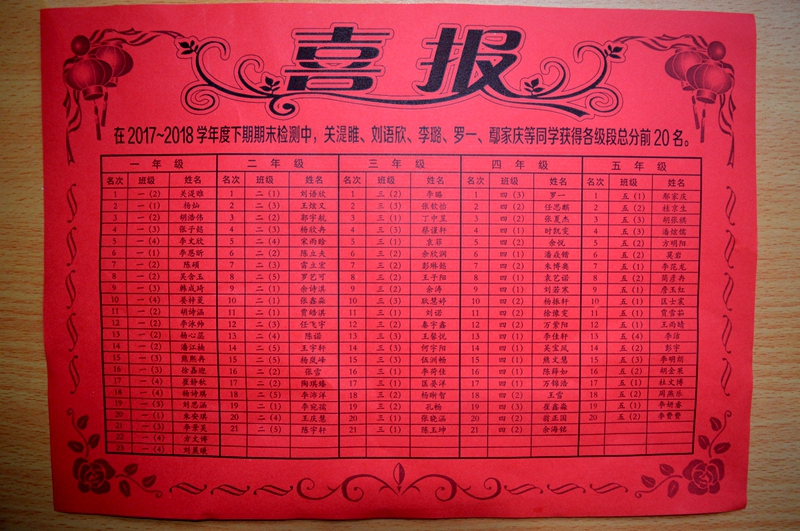 喜报
在2017~2018学年度下期期末检测中，关湜睢、刘语欣、李璐、罗一、鄢家庆等同学获得各级段总分前20名。
一年级 二年级 三年级 四年级 五年级
名次 班级 姓名 名次 班级 姓名 名次 班级 姓名 名次 班级 姓名 名次 班级 姓名
1 一(2) 关湜睢 1 二(1) 刘语欣 1 三(2) 李璐 1 四(3) 罗一 1 五(1) 鄢家庆
2 一(1) 杨灿 2 二(3) 王炫又 2 三(2) 张钦怡 2 四(2) 任思麒 2 五(2) 桂京生
3 一(2) 胡浩伟 3 二(2) 郭宇航 3 三(1) 丁中昱 3 四(2) 张夏杰 3 五(3) 胡张祺
4 一(3) 张子皓 4 二(3) 杨欣冉 4 三(1) 蔡谨轩 4 四(1) 时凯雯 4 五(3) 潘炫儒
5 一(4) 李文欣 5 二(4) 宋雨晗 5 三(1) 袁菲 5 四(2) 余悦 5 五(2) 方明阳
6 一(1) 李恩昕 6 二(2) 陈立夫 6 三(2) 余欣润 6 四(1) 6 五(2) 莫岩
7 一(2) 陈硕 7 二(3) 雷立宏 7 三(2) 彭琳懿 7 四(2) 朱博奥 7 五(1) 李范龙
8 一(2) 吴舍玉 8 二(3) 罗艺可 8 三(2) 王子阳 8 四(1) 袁艺诺 8 五(1) 简彦冉
9 一(3) 韩成琦 9 二(3) 余诗淇 9 三(2) 余涛 9 四(1) 刘若寒 9 五(1) 唐玉红
10 一(4) 姜梓菱 10 二(1) 张鑫淼 10 三(3) 耿慧婷 10 四(2) 杨振轩 10 五(1) 匡士宸
11 一(2) 胡诗涵 11 二(1) 贾皓淇 11 三(1) 刘诺 11 四(2) 徐豫雯 11 五(1) 贾雪茹
12 一(2) 李泳帅 12 二(3) 任飞宇 12 三(2) 秦宇鑫 12 四(2) 万紫阳 12 五(1) 王雨晴
13 一(2) 杨心蕊 13 二(4) 陈诺 13 三(3) 王馨悦 13 四(1) 李佳轩 13 五(4) 李洁
14 一(2) 潘江杨 14 二(3) 王宇轩 14 三(3) 何宇阳 14 四(1) 吴宝风 14 五(2) 彭宇
15 一(3) 熊熙冉 15 二(5) 杨岚峰 15 三(3) 伍洲畅 15 四(1) 熊文慧 15 五(3) 李明朗
16 一(3) 徐嘉迎 16 二(2) 张雪 16 三(1) 李荷佳 16 四(1) 陈薛如 16 五(2) 胡金果
17 一(4) 翟静秋 17 二(2) 陶琪臻 17 三(1) 匡姜洋 17 四(1) 万锦浩 17 五(1) 杜文博
18 一(4) 杨诗琪 18 二(5) 李沛洋 18 三(2) 杨晰智 18 四(2) 王雪 18 五(2) 周燕乐
19 一(3) 刘思涵 19 二(1) 李宛撰 19 三(1) 孔畅 19 四(3) 崔鑫淼 19 五(1) 李妍睿
20 一(1) 朱安琪 20 二(4) 王庆慧 20 三(1) 张晓涵 20 四(2) 20 五(2) 李费费
21 一(1) 李景昊 21 二(5) 陈宇轩 21 三(1) 陈玉坤 21 四(2) 余海铭
22 一(4) 方文博
23 一(4) 刘晨曦